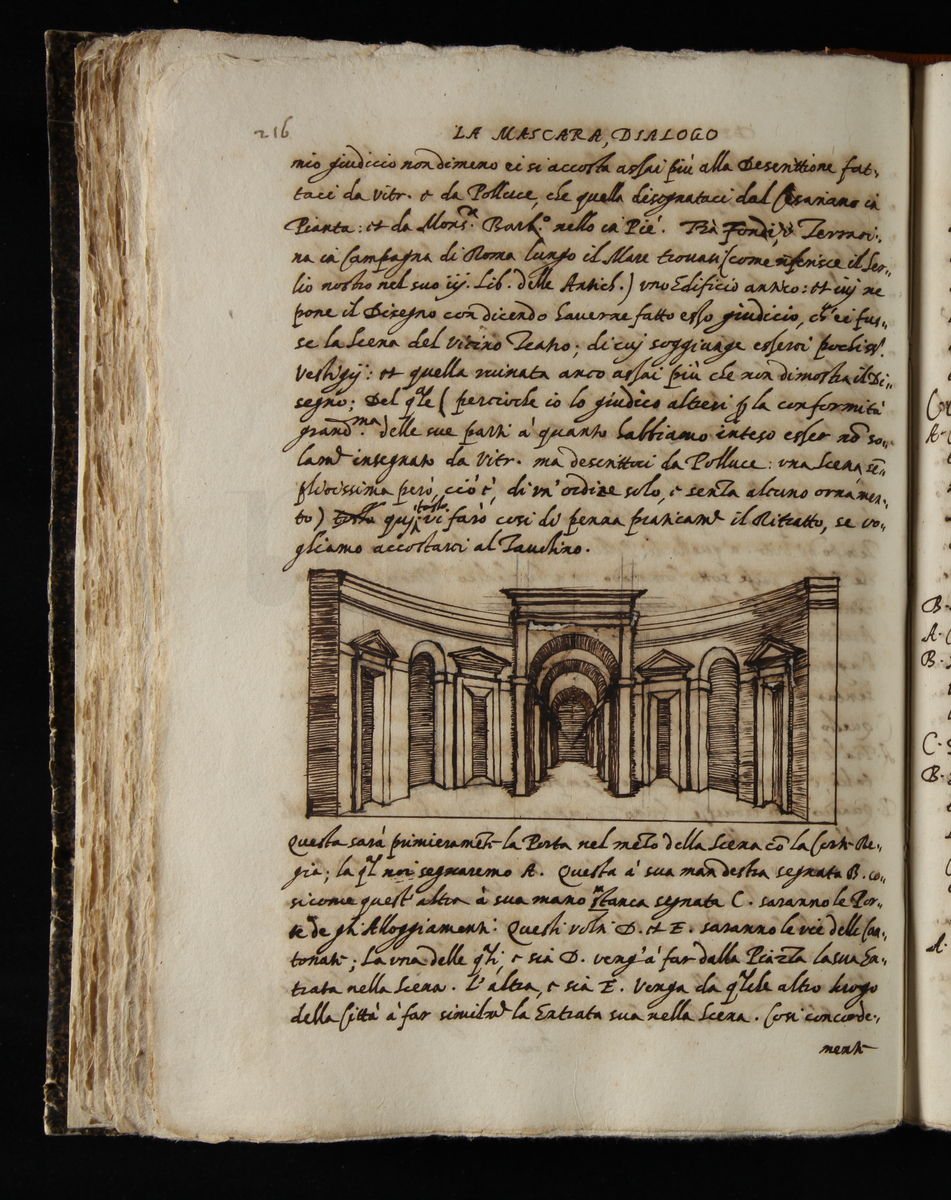 216
LA MASCARA, DIALOGO
mio giudicio nondimeno ei si accosta assai più alla Descrittione fat-
taci da Vitr. e da Polluce, che quella disegnataci dal Cesariano in
Pianta: et da Mons.r Barb.o nello in Piè. Trà Fondi, è Terraci-
na in Campagna di Roma lungo il Mare trovasi (come riferisce il Ser-
lio nostro nel suo iij. Lib. delle Antich.) uno Edificio antico: et iuj ne
pone il Disegno con dicendo haverne fatto esso giudicio, ch' ei fus-
se la Scena del vicino Teatro; di cuj soggiunge esservi pochiss.
Vestigij: et quella ruinata anco assai più che non dimostra il Di-
segno; Del qle (percioche io lo giudico altresi p la conformità
grandma delle sue parti à quanto habbiamo inteso esser nō so-
lamē insegnato da Vitr. ma descrittoci da Polluce: una Scena sē-
plicissima però, ciò è, di un' ordine solo, e senza alcuno ornamen-
to) quj vi farò così di penna pianamē il Ritratto, se vo-
gliamo accostarci al Tavolino.
Questa sarà primieramēte la Porta nel mezo della Scena cō la Corte Re-
gia; la ql noi segnaremo A. Questa à sua man destra segnata B. co-
si come quest' altra à sua mano stanca segnata C. saranno le Por-
te de gli Alloggiamenti. Questi volti D. et E. saranno le vie delle Can-
tonate; La una delle qli, e sia D. veng' à far dalla Piazza la sua En-
trata nella Scena. L' altra, e sia E. Venga da qlche altro luogo
della Città à far similmē la Entrata sua nella Scena. Cosi concorde-
mente